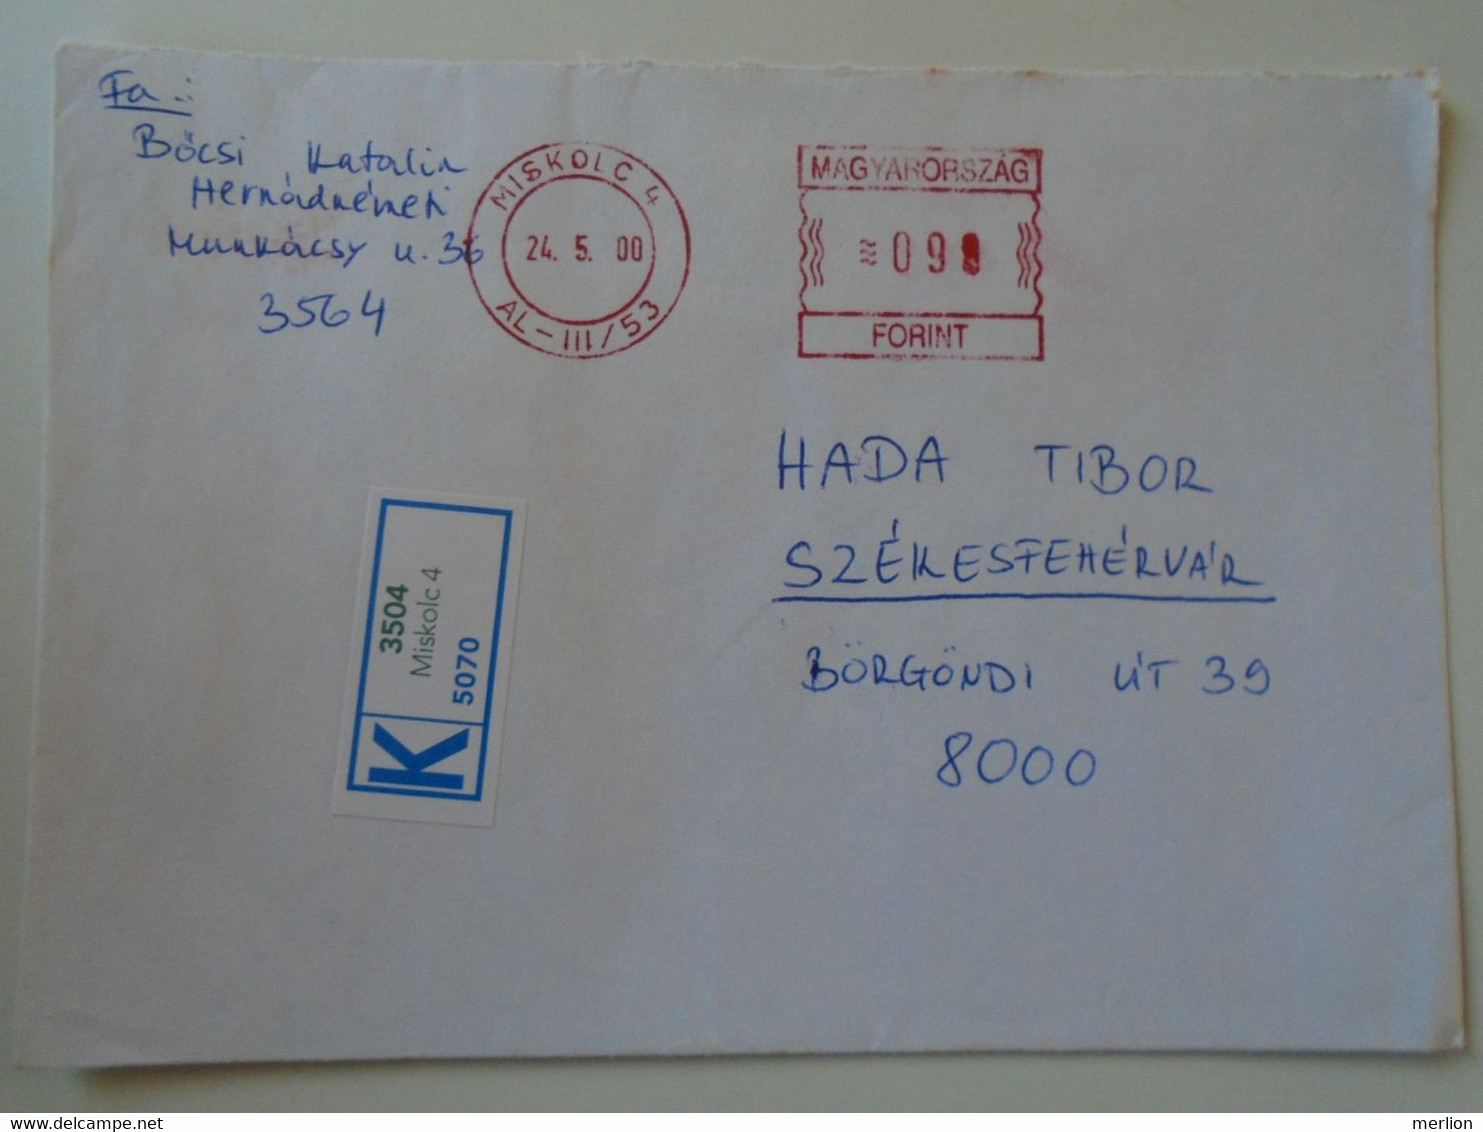 Fa.:
Bőcsi Katalin
Hernádnémeti
Munkácsy u. 36
3564
MISKOLC 4
24. 5. 00
AL-III/53
MAGYARORSZÁG
FORINT
HADA TIBOR
SZÉKESFEHÉRVÁR
BÖRGÖNDI ÚT 39
8000
K
3504
Miskolc 4
5070
merlion